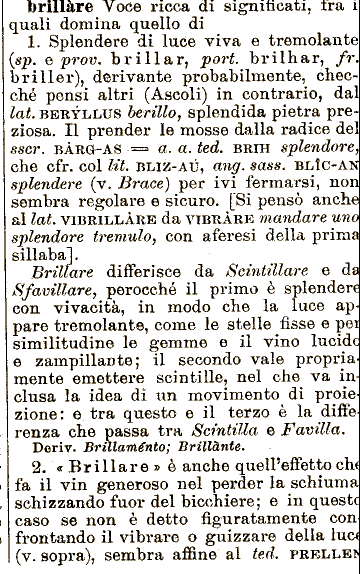 brillàre Voce ricca di significati, fra i
quali domina quello di
1. Splendere di luce viva e tremolante
(sp. e prov. brillar, port. brilhar, fr.
briller), derivante probabilmente, chec-
ché pensi altri (Ascoli) in contrario, dal
lat. BERÝLLUS berillo, splendida pietra pre-
ziosa. Il prender le mosse dalla radice del
sscr. BÀRG-AS = a. a. ted. BRIH splendore,
che cfr. col lit. BLIZ-AÚ, ang. sass. BLÎC-AN
splendere (v. Brace) per ivi fermarsi, non
sembra regolare e sicuro. [Si pensò anche
al lat. VIBRILLÀRE da VIBRÀRE mandare uno
splendore tremulo, con aferesi della prima
sillaba].
Brillare differisce da Scintillare e da
Sfavillare, perocché il primo è splendere
con vivacità, in modo che la luce ap-
pare tremolante, come le stelle fisse e per
similitudine le gemme e il vino lucido
e zampillante; il secondo vale propria-
mente emettere scintille, nel che va in-
clusa la idea di un movimento di proie-
zione: e tra questo e il terzo è la diffe-
renza che passa tra Scintilla e Favilla.
Deriv. Brillaménto; Brillànte.
2. «Brillare» è anche quell'effetto che
fa il vin generoso nel perder la schiuma
schizzando fuor del bicchiere; e in questo
caso se non è detto figuratamente con-
frontando il vibrare o guizzare della luce
(v. sopra), sembra affine al ted. PRELLEN